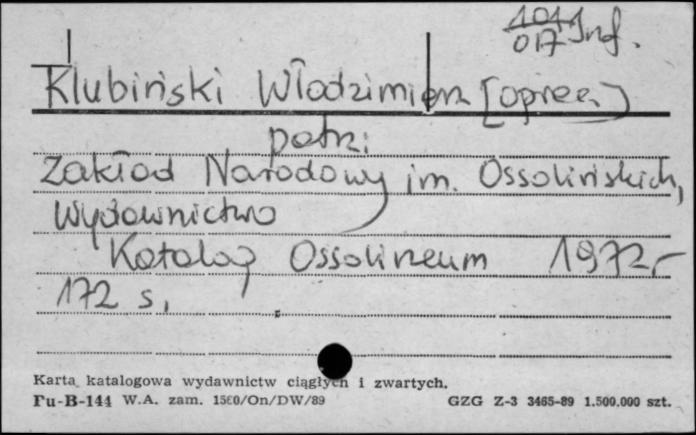 1011
017 Inf.
Klubiński Włodzimierz [oprac.]
patrz:
Zakład Narodowy im. Ossolińskich,
Wydawnictwo
Katalog Ossolineum 1972,-
172 s.
Karta katalogowa wydawnictw ciągłych i zwartych.
Pu-B-144 W.A. zam. 1560/On/DW/89 GZG Z-3 3465-89 1.500.000 szt.